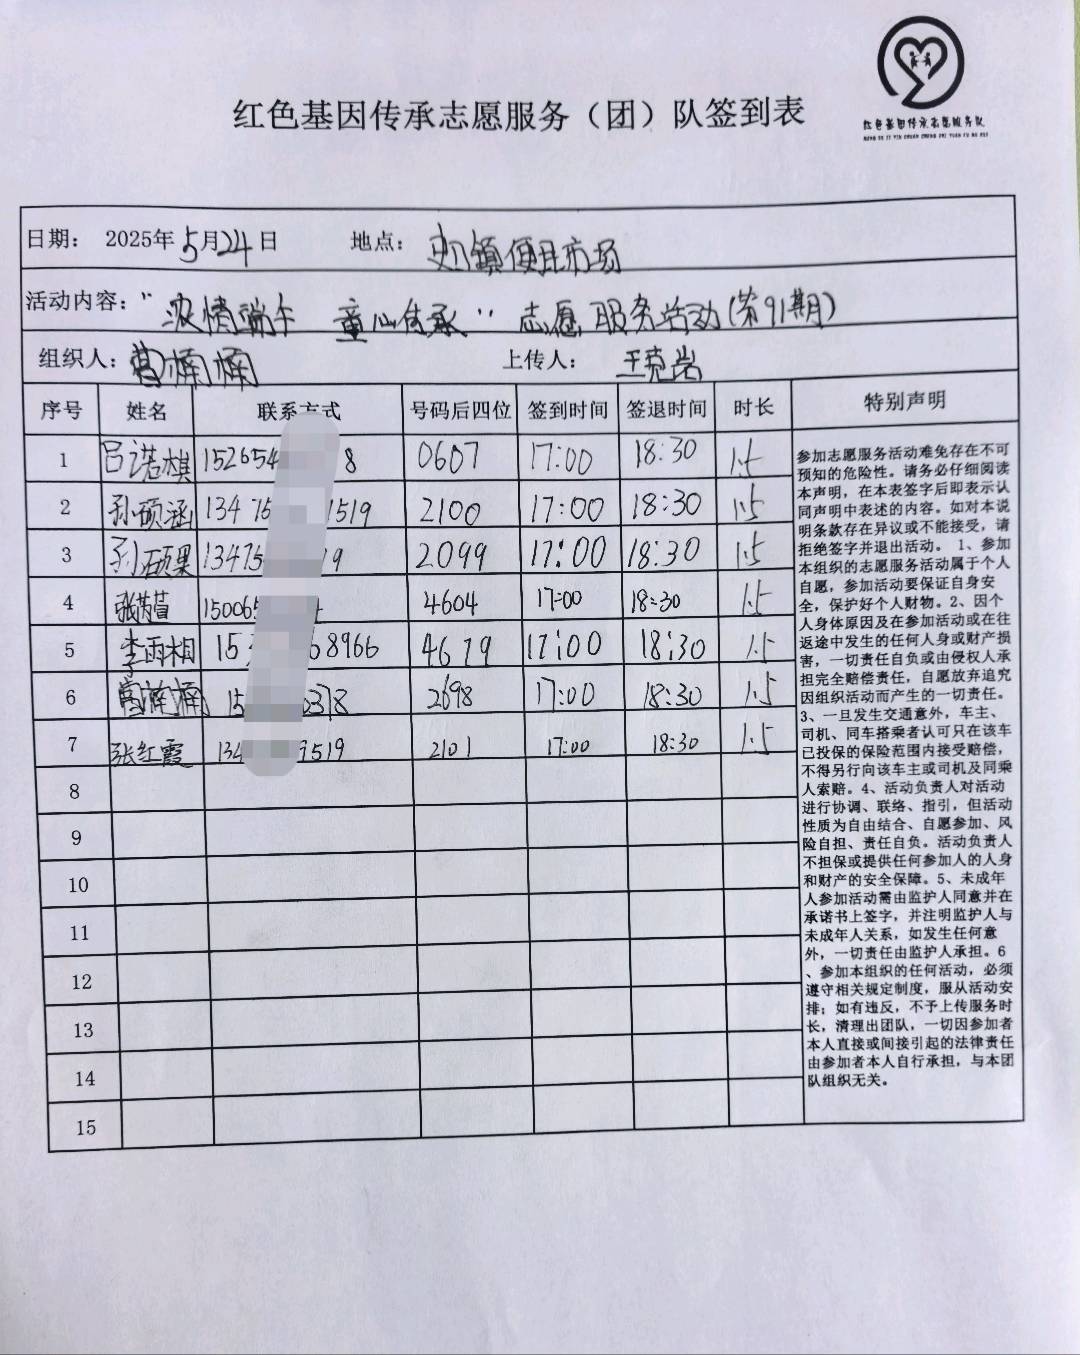 红色基因传承志愿服务（团）队签到表
红色基因传承志愿服务队
日期： 2025年5月24日 地点： 镇便民市场
活动内容："浓情端午 童心传承" 志愿服务活动(第91期)
组织人：葛楠楠 上传人：王克岩
序号 姓名 联系方式 号码后四位 签到时间 签退时间 时长 特别声明
1 吕诺棋 152654 8 0607 17:00 18:30 1.5
2 孙硕涵 13475 1519 2100 17:00 18:30 1.5
3 孙硕果 13475 19 2099 17:00 18:30 1.5
4 15006 4604 17:00 18:30 1.5
5 李雨相 15 8966 4679 17:00 18:30 1.5
6 葛楠楠 15 378 2698 17:00 18:30 1.5
7 张红霞 134 9519 2101 17:00 18:30 1.5
8
9
10
11
12
13
14
15
参加志愿服务活动难免存在不可
预知的危险性。请务必仔细阅读
本声明，在本表签字后即表示认
同声明中表述的内容。如对本说
明条款存在异议或不能接受，请
拒绝签字并退出活动。 1、参加
本组织的志愿服务活动属于个人
自愿，参加活动要保证自身安
全，保护好个人财物。2、因个
人身体原因及在参加活动或在往
返途中发生的任何人身或财产损
害，一切责任自负或由侵权人承
担完全赔偿责任，自愿放弃追究
因组织活动而产生的一切责任。
3、一旦发生交通意外，车主、
司机、同车搭乘者认可只在该车
已投保的保险范围内接受赔偿，
不得另行向该车主或司机及同乘
人索赔。4、活动负责人对活动
进行协调、联络、指引，但活动
性质为自由结合、自愿参加、风
险自担、责任自负。活动负责人
不担保或提供任何参加人的人身
和财产的安全保障。5、未成年
人参加活动需由监护人同意并在
承诺书上签字，并注明监护人与
未成年人关系，如发生任何意
外，一切责任由监护人承担。6
、参加本组织的任何活动，必须
遵守相关规定制度，服从活动安
排；如有违反，不予上传服务时
长，清理出团队，一切因参加者
本人直接或间接引起的法律责任
由参加者本人自行承担，与本团
队组织无关。